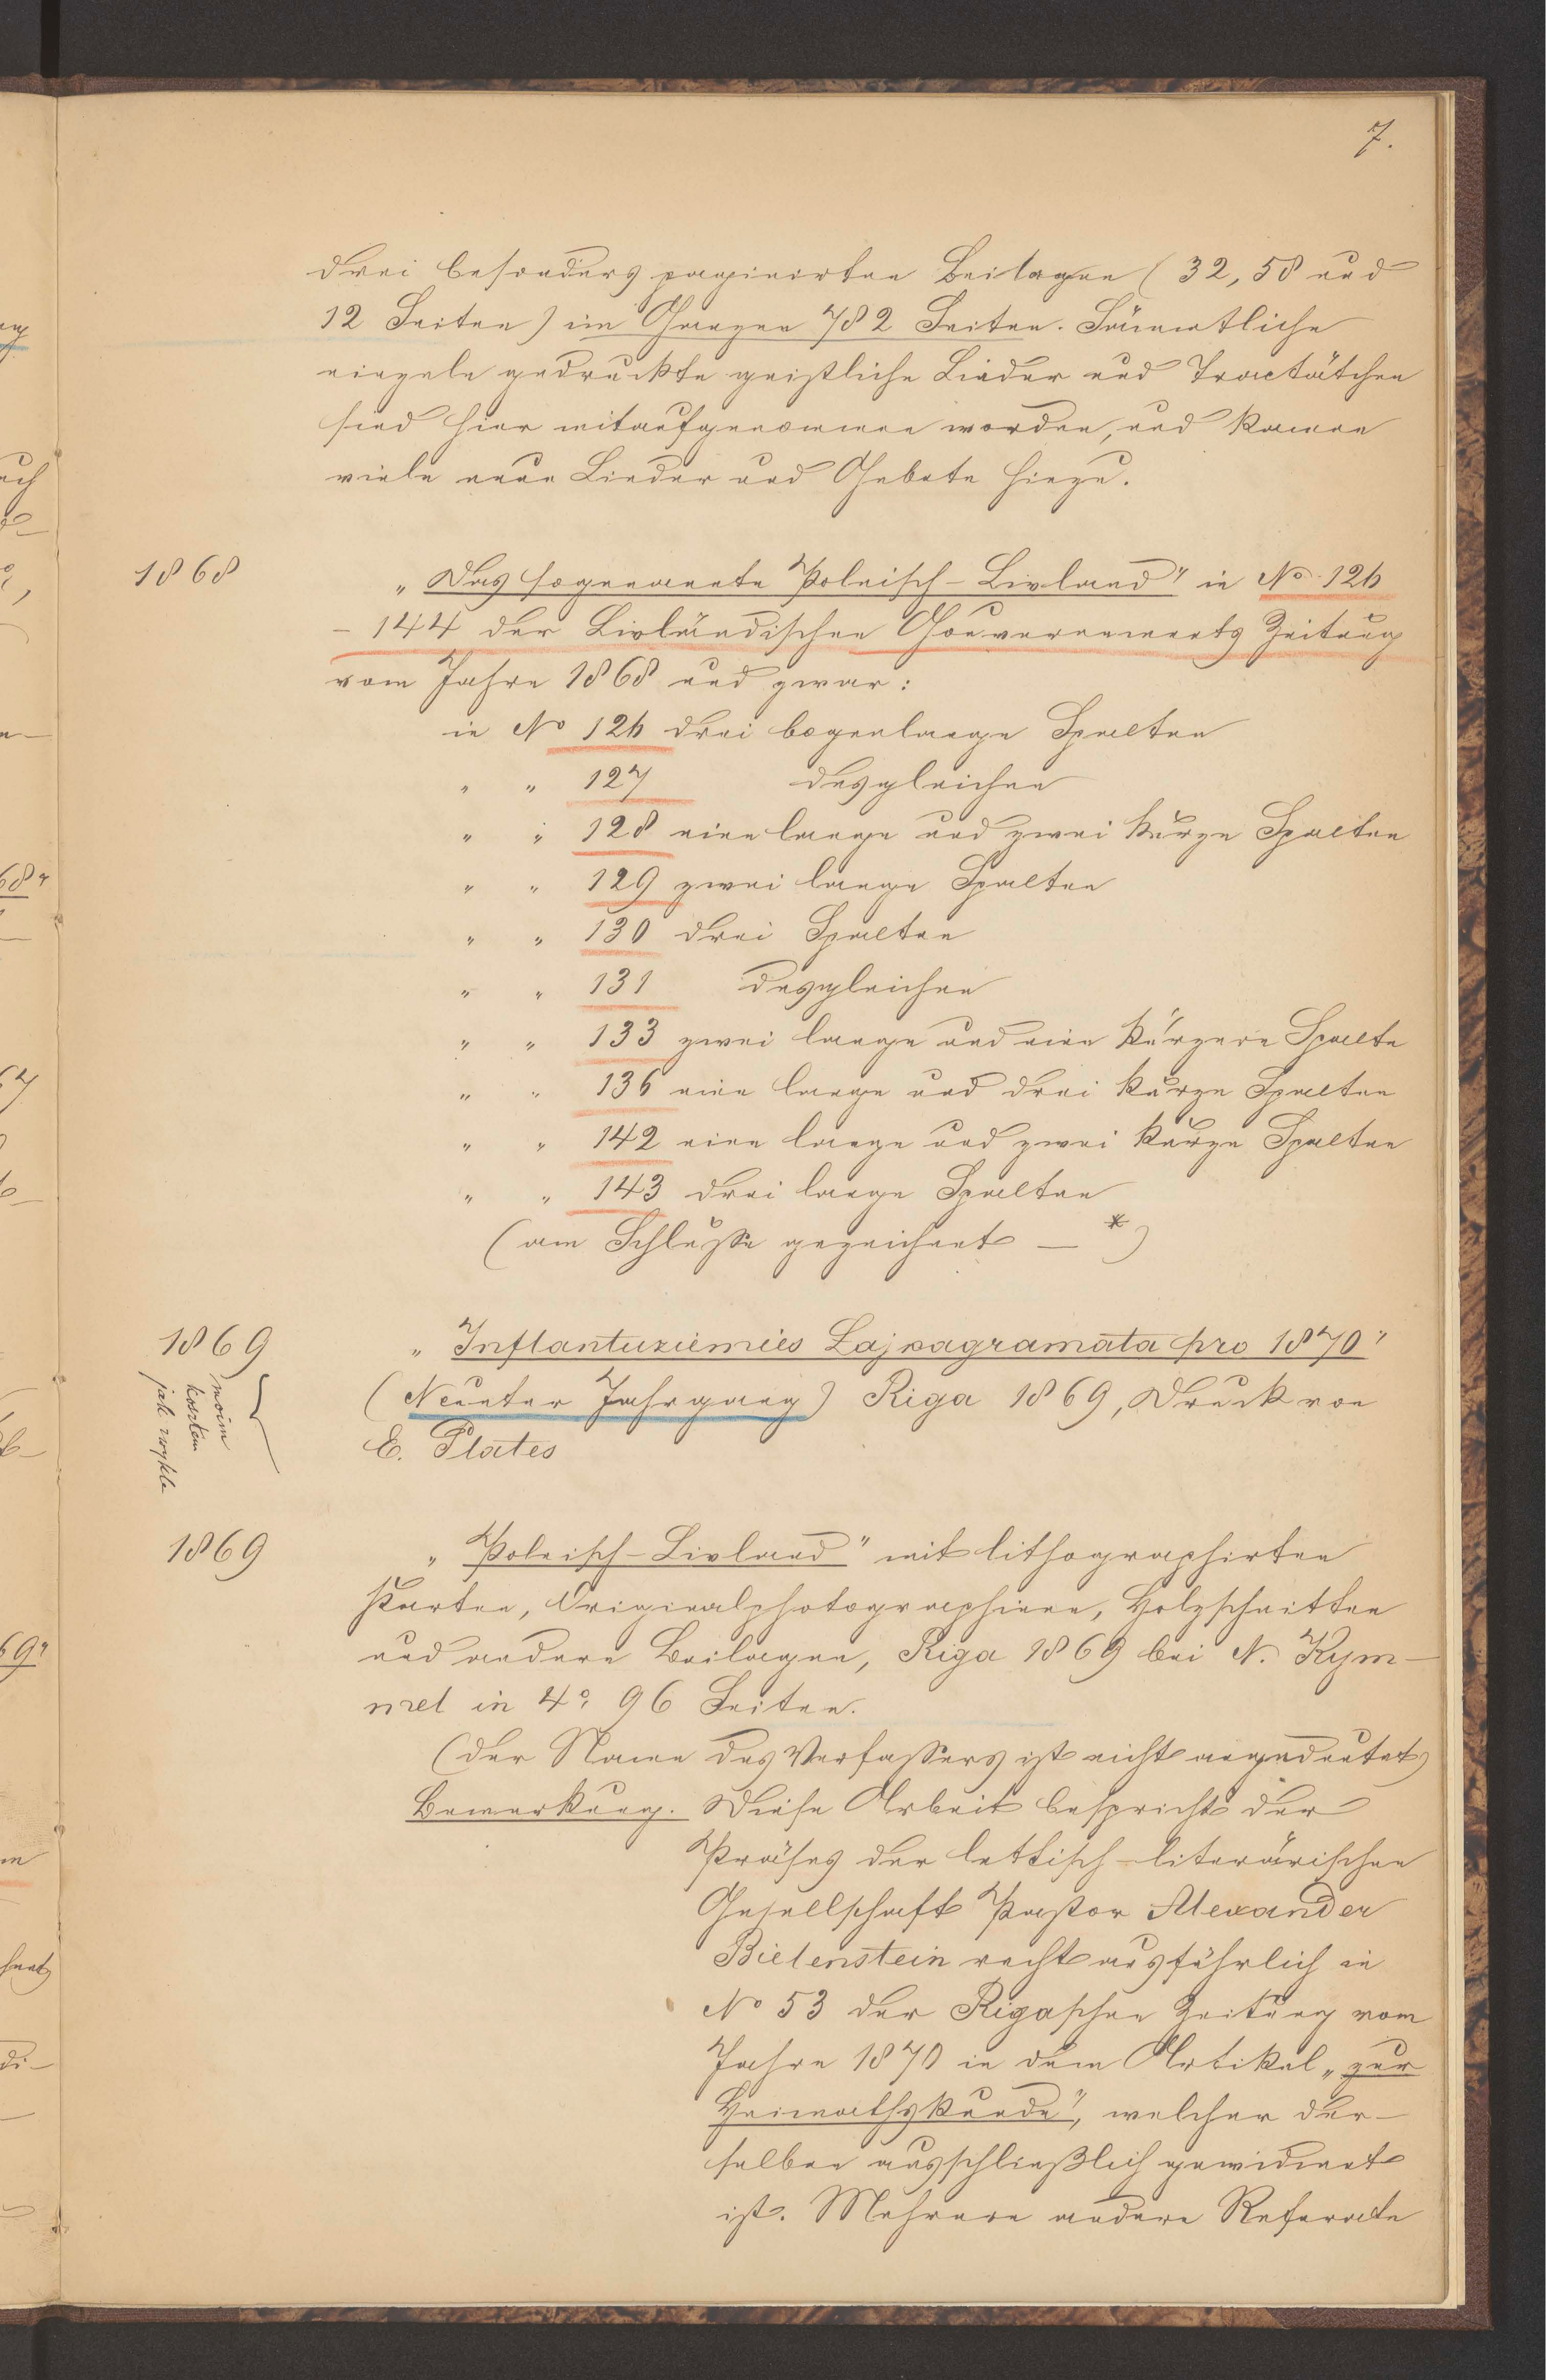 7.
drei besonders paginirten Beilagen (32, 58 und
12 Seiten) im Ganzen 782 Seiten. Sämmtliche
einzeln gedruckte geistliche Lieder und Tractätchen
sind hier mitaufgenommen worden, und kamen
viele neue Lieder und Gebete hinzu.
1868 „Das sogenannte Polnisch-Livland" in No 126
- 144 der Livländischen Gouvernements Zeitung
vom Jahre 1868 und zwar:
in No 126 drei bogenlange Spalten
" " 127 desgleichen
" " 128 eine lange und zwei kurze Spalten
" " 129 zwei lange Spalten
" " 130 drei Spalten
" " 131 desgleichen
" " 133 zwei lange und eine kürzere Spalte
" " 136 eine lange und drei kurze Spalten
" " 142 eine lange und zwei kurze Spalten
" " 143 drei lange Spalten
(am Schlusse gezeichnet — *)
1869 „Inflantuziemies Lajkagramata pro 1870"
(Neunter Jahrgang) Riga 1869, Druck von
E. Plates
moim
kosztem
jak zwykle
1869 „Polnisch-Livland" mit lithographirten
Karten, Originalphotographieen, Holzschnitten
und andere Beilagen, Riga 1869 bei N. Kym-
mel in 4° 96 Seiten.
(der Name des Verfassers ist nicht angedeutet)
Bemerkung. Diese Arbeit bespricht der
Präses der lettisch-literärischen
Gesellschaft Pastor Alexander
Bielenstein recht ausführlich in
No 53 der Rigaschen Zeitung vom
Jahre 1870 in dem Artikel „zur
Heimathskunde", welcher der-
selben ausschließlich gewidmet
ist. Mehrere andere Referate